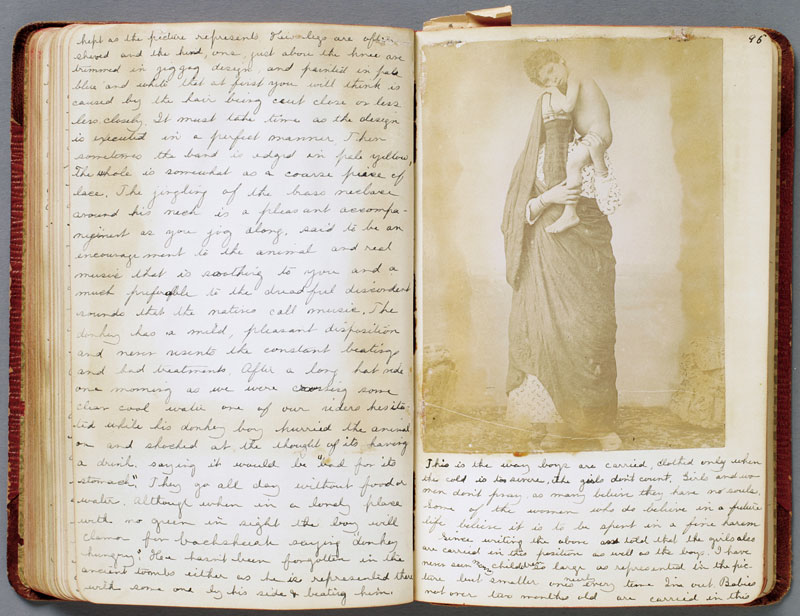 kept as the picture represents. His legs are often
shaved and the hind, one, just above the knee are
trimmed in zigzag design, and painted in pale
blue and white that at first you will think is
caused by the hair being cut close or less
less closely. It must take time as the design
is executed in a perfect manner. Then
sometimes the band is edged in pale yellow,
the whole is somewhat as a coarse peice of
lace. The jingling of the brass neclase
around his neck is a pleasant accompa-
niment as you jog along. said to be an
encouragement to the animal and real
music that is soothing to you and a
much preferable to the dreadful discordent
sounds that the natives call music. The
donkey has a mild, pleasant disposition
and never resents the constant beatings
and bad treatments. After a long hot ride
one morning as we were crossing some
clear cool water one of our riders hesita-
ted while his donkey boy hurried the animal
on and shocked at the thought of its having
a drink. saying it would be "bad for its
stomach". They go all day without food or
water. Although when in a lonely place
with no green in sight the boy will
clamor for backsheesh saying "donkey
hungry". He hasn't been forgotten in the
ancient tombs either as he is represented there
with some one by his side & beating him.
95
This is the way boys are carried, clothed only when
the cold is to severe, the girls don't count. Girls and wo-
men don't pray, as many believe they have no souls.
Some of the women who do believe in a future
life believe it is to be spent in a fine harem
Since writing the above am told that the girls also
are carried in this position as well as the boys. I have
never seen children so large as represented in the pic-
ture but smaller ones nearly every time I'm out. Babies
not over two months old are carried in this